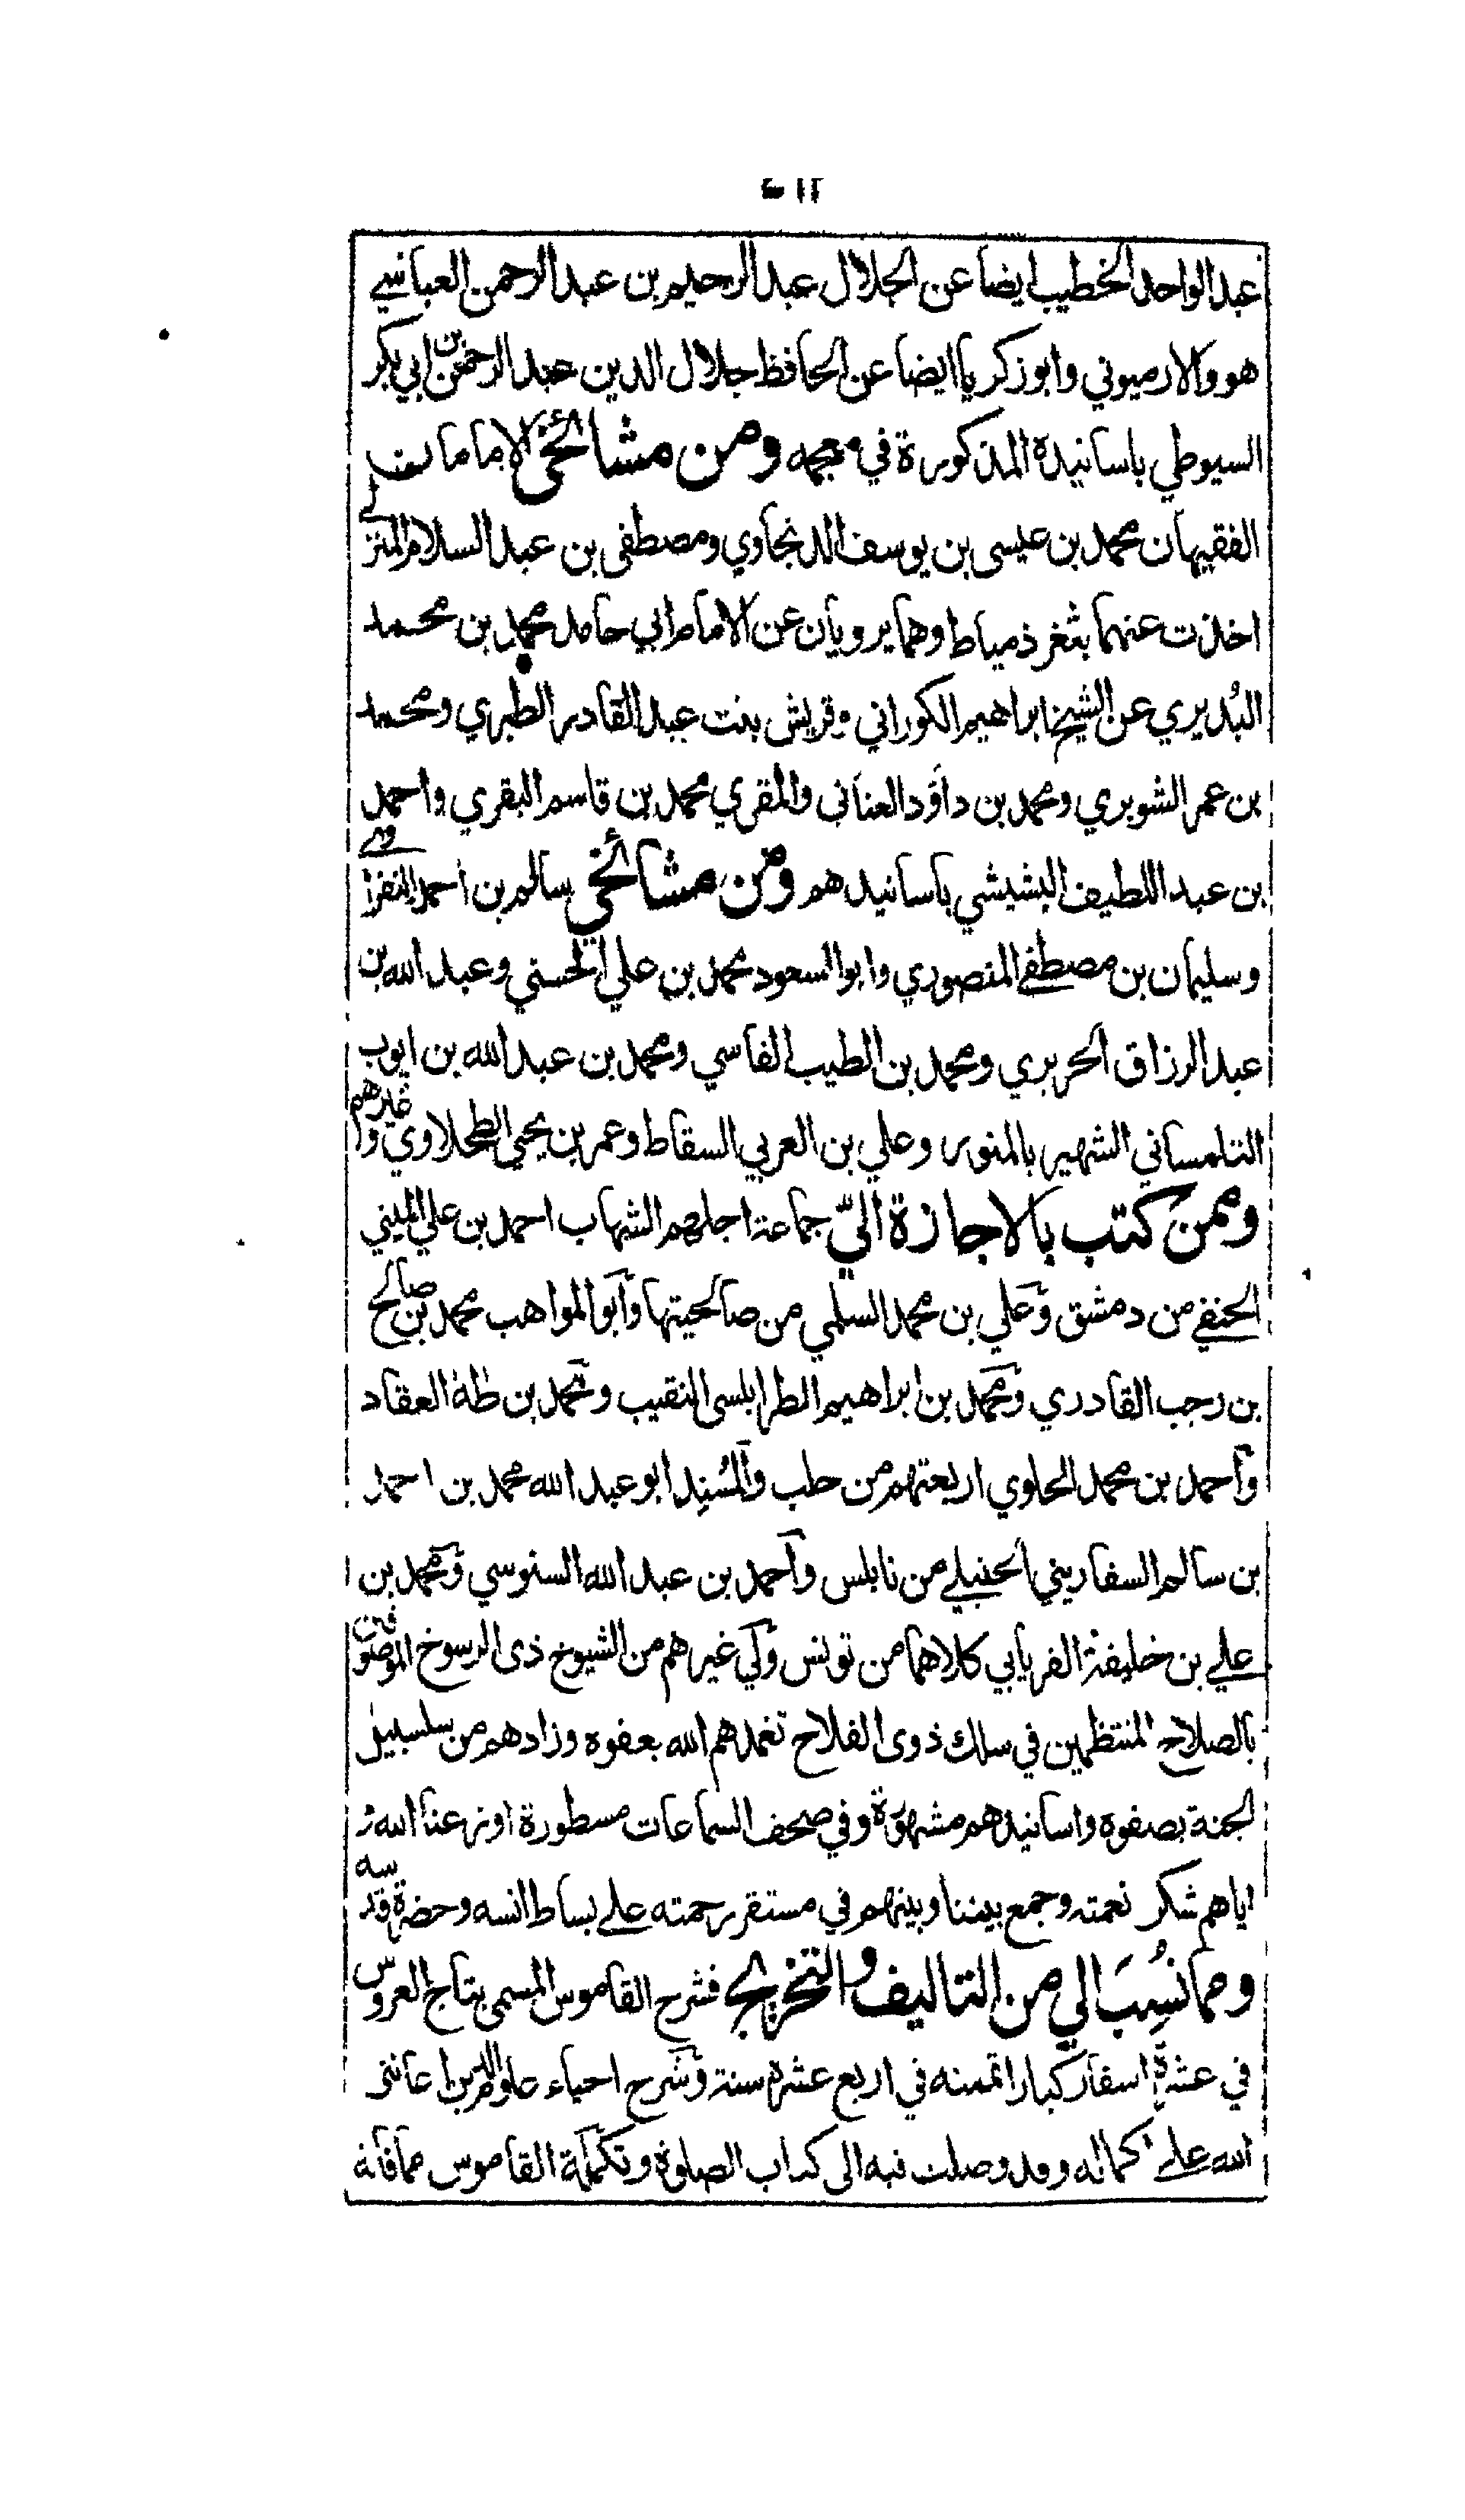 عبد الواحد الخطيب ايضا عن الجلال عبد الرحيم بن عبد الرحمن العباسي
هو والارميوني وابو زكريا ايضا عن الحافظ جلال الدين عبد الرحمن بن ابي بكر
السيوطي باسانيده المذكورة في معجمه ومن مشائخي الامامان
الفقيهان محمد بن عيسى بن يوسف الدنجاوي ومصطفى بن عبد السلام المنزلي
اخذت عنهما بثغر ذمياط وهما يرويان عن الامام ابي حامد محمد بن محمد
البُديري عن الشيخ ابراهيم الكوراني وقريش بنت عبد القادر الطبري ومحمد
بن عمر الشوبري ومحمد بن داؤد العناني والمقري محمد بن قاسم البقري واحمد
بن عبد اللطيف البشيشي باسانيدهم ومن مشائخي سالم بن احمد النفراوي
وسليمان بن مصطفى المنصوري وابو السعود محمد بن علي الحسني وعبد الله بن
عبد الرزاق الحريري ومحمد بن الطيب الفاسي ومحمد بن عبد الله بن ايوب
التلمساني الشهير بالمنور وعلي بن العربي السقاط وعمر بن يحيى الطحلاوي وغيرهم
وممن كتب بالاجازة اليّ جماعة اجلهم الشهاب احمد بن علي المنيني
الحنفي من دمشق وعلي بن محمد السلمي من صالحيتها وابو المواهب محمد بن صالح
بن رجب القادري ومحمد بن ابراهيم الطرابلسي النقيب ومحمد بن طه العقاد
واحمد بن محمد الحلوي اربعتهم من حلب والمُسنِد ابو عبد الله محمد بن احمد
بن سالم السفاريني الحنبلي من نابلس واحمد بن عبد الله السنوسي ومحمد بن
علي بن خليفة الغريابي كلاهما من تونس وفي غيرهم من الشيوخ ذى الرسوخ الموصوفين
بالصلاح المنتظمين في سلك ذوى الفلاح تغمدهم الله بعفوه وزادهم من سلسبيل
الجنة بصفوه واسانيدهم مشهورة وفي صحف السماعات مسطورة اوزعنا الله
اياهم شكر نعمته وجمع بيننا وبينهم في مستقر رحمته على بساط انسه وحضرة قدسه
ومما نُسِبَ الي من التاليف والتخريج فشرح القاموس المسمى بتاج العروس
في عشرة اسفار كبار اتممته في اربع عشرة سنة وشرح احياء علوم الدين اعانني
الله على اكماله وقد وصلت فيه الى كتاب الصلوة وتكملة القاموس مما فاته